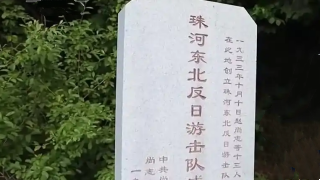 一九三三年十月十日赵尚志等十三人
在此地创立珠河东北反日游击队
珠河东北反日游击队
中共尚
尚志
一